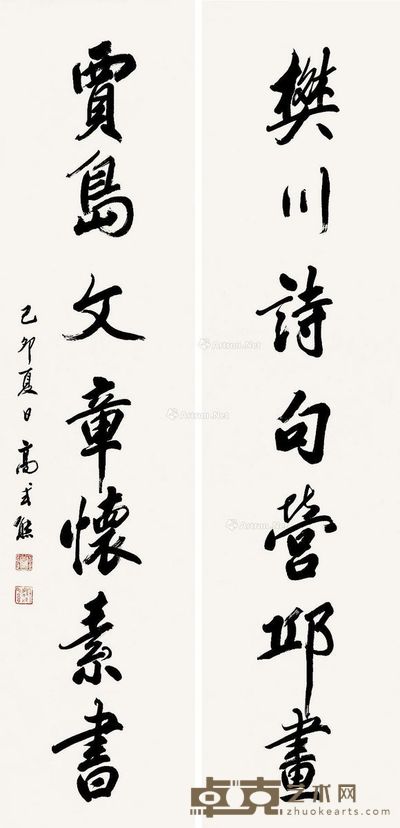 樊川詩句營邱畫
賈島文章懷素書
己卯夏日高式熊
Artron.Net
Artron.Net
Artron.Net
卓克艺术网
zhuokearts.com